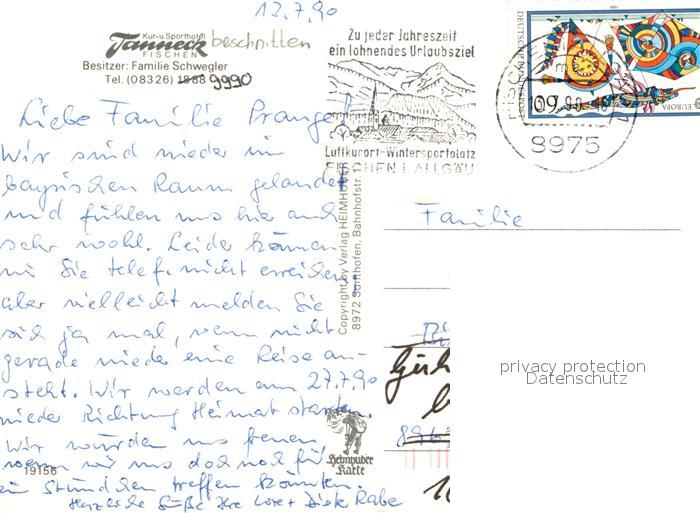 13.7.90
Kur- u. Sporthotel
Tanneck
beschnitten
FISCHEN
Besitzer: Familie Schwegler
Tel. (08326) 1888 9990
Zu jeder Jahreszeit
ein lohnendes Urlaubsziel
Luftkurort-Wintersportplatz
FISCHEN I. ALLGÄU
8975
DEUTSCHE BUNDESPOST
60
EUROPA
Liebe Familie Prange!
Wir sind wieder im
bayrischen Raum gelandet
und fühlen uns hier auch
sehr wohl. Leider können
wir Sie telef. nicht erreichen,
aber vielleicht melden Sie
sich ja mal, wenn nicht
gerade wieder eine Reise an-
steht. Wir werden am 27.7.90
wieder Richtung Heimat starten.
Wir würden uns freuen,
wenn wir uns doch noch für
ein Stündchen treffen könnten.
Herzliche Grüße Ihre Lore + Dieter Rabe
19156
Copyright by Verlag HEIMHUBER
8972 Sonthofen, Bahnhofstr. 1
Heimhuber
Karte
Familie
896
privacy protection
Datenschutz